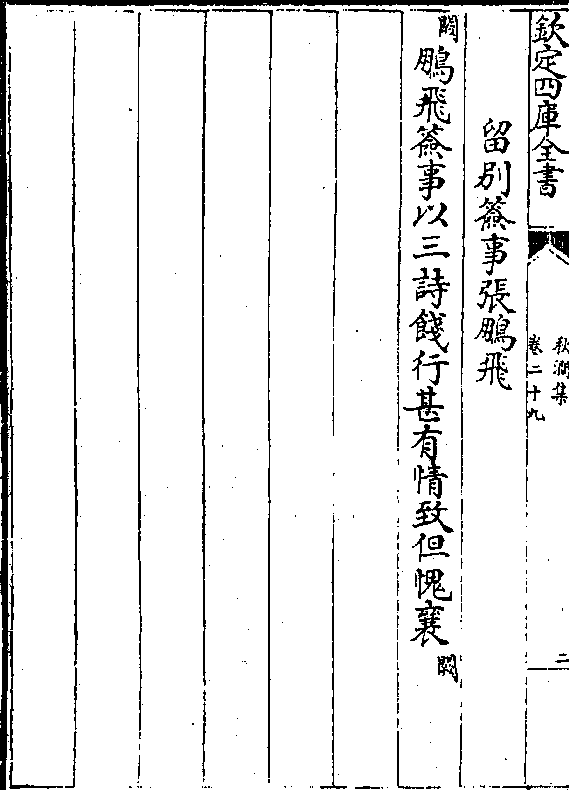 欽定四庫全書
秋澗集
卷二十九
二
留別簽事張鵬飛
闕鵬飛簽事以三詩餞行甚有情致但愧襄闕